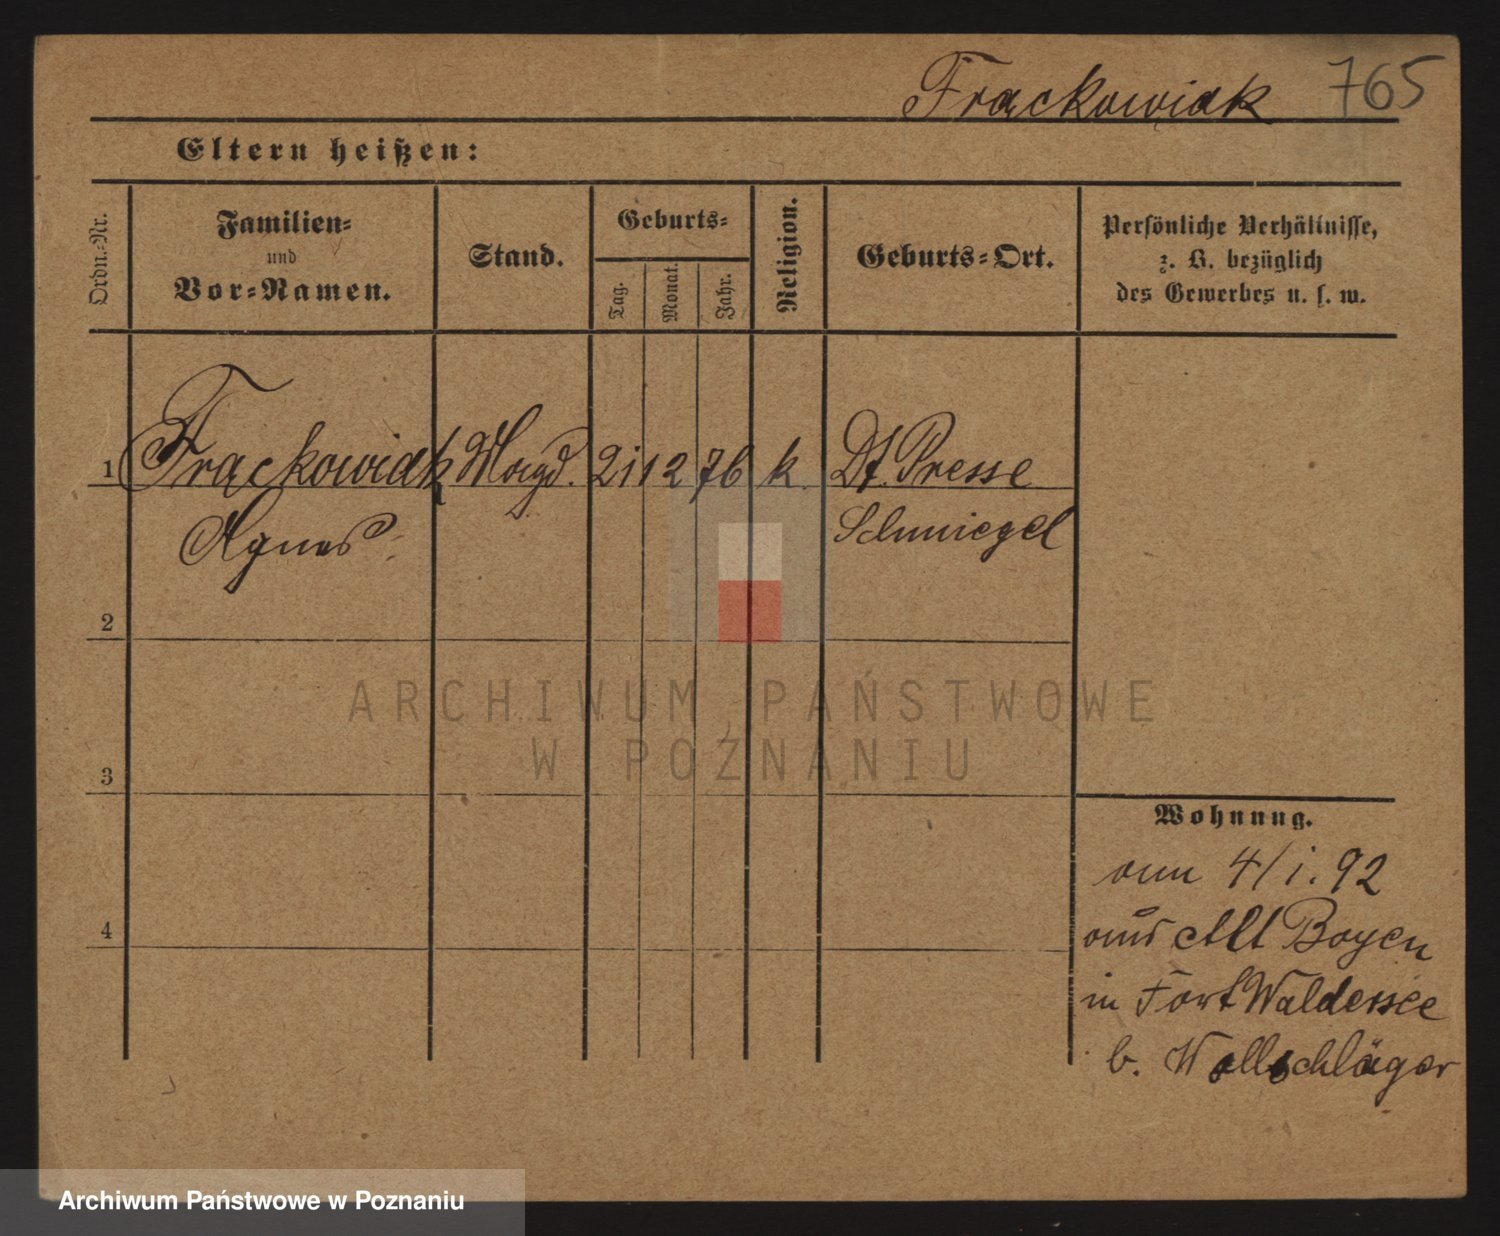 Frąckowiak 765
Eltern heißen:
Ordn.-Nr.
Familien-
und
Vor-Namen.
Stand.
Geburts-
Tag.
Monat.
Jahr.
Religion.
Geburts-Ort.
Persönliche Verhältnisse,
z. B. bezüglich
des Gewerbes u. s. w.
1 Frąckowiak Magd. 21 12 76 k. Dt. Presse
Agnes Schmiegel
2
3
4
Wohnung.
am 4/1.92
aus Alt Boyen
in Fort Waldersee
b. Wollschläger
ARCHIWUM PAŃSTWOWE
W POZNANIU
Archiwum Państwowe w Poznaniu